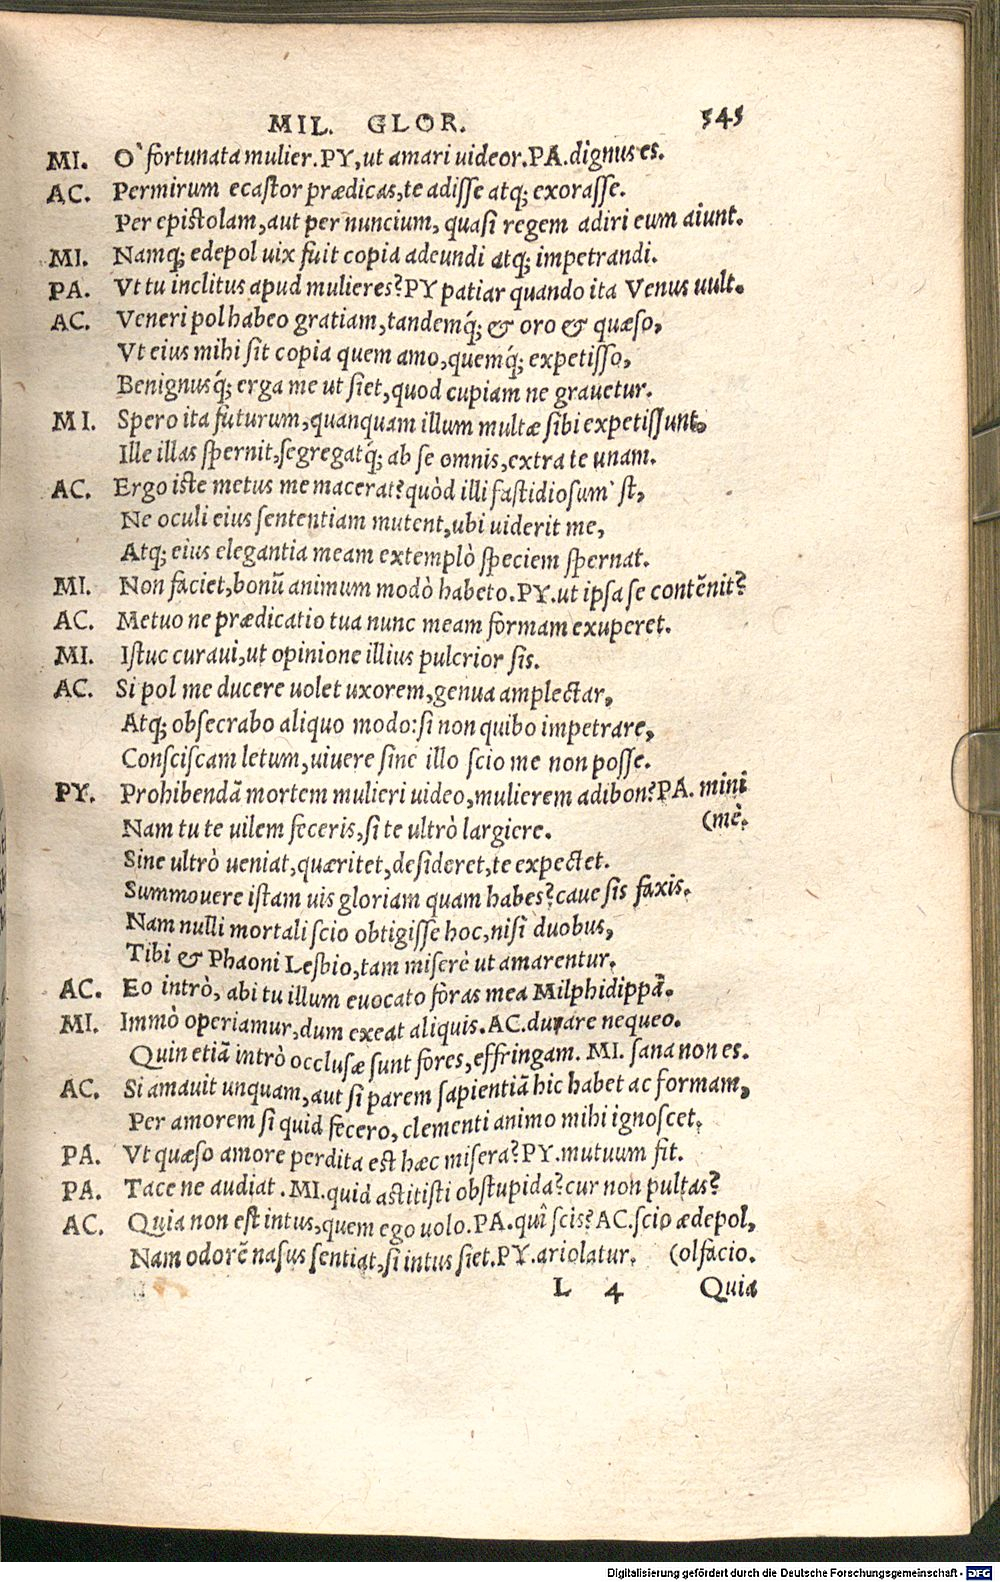 MIL. GLOR. 545
MI. O' fortunata mulier. PY, ut amari uideor. PA. dignus es.
AC. Permirum ecastor prædicas, te adisse atq; exorasse.
Per epistolam, aut per nuncium, quasi regem adiri eum aiunt.
MI. Namq; edepol uix fuit copia adeundi atq; impetrandi.
PA. Vt tu inclitus apud mulieres? PY patiar quando ita Venus uult.
AC. Veneri pol habeo gratiam, tandemq́; & oro & quæso,
Vt eius mihi sit copia quem amo, quemq́; expetisso,
Benignusq́; erga me ut siet, quod cupiam ne grauetur.
MI. Spero ita futurum, quanquam illum multæ sibi expetissunt,
Ille illas spernit, segregatq́; ab se omnis, extra te unam.
AC. Ergo iste metus me macerat? quòd illi fastidiosum' st,
Ne oculi eius sententiam mutent, ubi uiderit me,
Atq; eius elegantia meam extemplò speciem spernat.
MI. Non faciet, bonũ animum modò habeto. PY. ut ipsa se contẽnit?
AC. Metuo ne prædicatio tua nunc meam formam exuperet.
MI. Istuc curaui, ut opinione illius pulcrior sis.
AC. Si pol me ducere uolet uxorem, genua amplectar,
Atq; obsecrabo aliquo modo: si non quibo impetrare,
Consciscam letum, uiuere sine illo scio me non posse.
PY. Prohibendã mortem mulieri uideo, mulierem adibon? PA. mini
Nam tu te uilem feceris, si te ultrò largiere. (mè.
Sine ultrò ueniat, quæritet, desideret, te expectet.
Summouere istam uis gloriam quam habes? caue sis faxis.
Nam nulli mortali scio obtigisse hoc, nisi duobus,
Tibi & Phaoni Lesbio, tam miserè ut amarentur.
AC. Eo intrò, abi tu illum euocato foras mea Milphidippã.
MI. Immò operiamur, dum exeat aliquis. AC. durare nequeo.
Quin etiã intrò occlusæ sunt fores, effringam. MI. sana non es.
AC. Si amauit unquam, aut si parem sapientiã hic habet ac formam,
Per amorem si quid fecero, clementi animo mihi ignoscet.
PA. Vt quæso amore perdita est hæc misera? PY. mutuum fit.
PA. Tace ne audiat. MI. quid astitisti obstupida? cur non pultas?
AC. Quia non est intus, quem ego uolo. PA. quî scis? AC. scio ædepol,
Nam odorẽ nasus sentiat, si intus siet. PY. ariolatur. (olfacio.
L 4 Quia
Digitalisierung gefördert durch die Deutsche Forschungsgemeinschaft - DFG